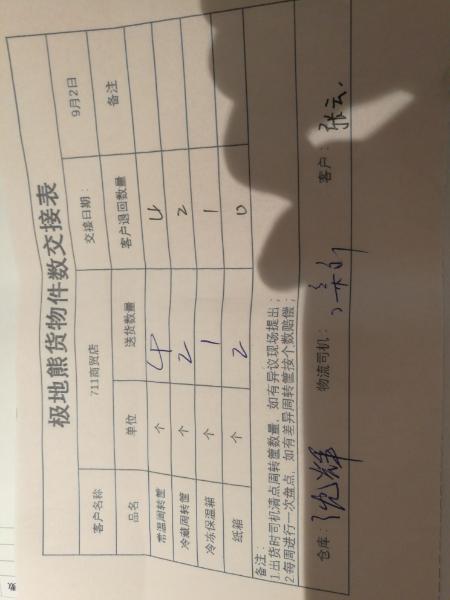 极地熊货物件数交接表
客户名称 711商贸店 交接日期: 9月2日
品名 单位 送货数量 客户退回数量 备注
常温周转筐 个 4 4
冷藏周转筐 个 2 2
冷冻保温箱 个 1 1
纸箱 个 2 0
备注:
1.出货时司机清点周转筐数量,如有异议现场提出;
2.每周进行一次盘点,如有差异周转筐按个数赔偿;
仓库: 沈辉 物流司机: 客户: 张云
数